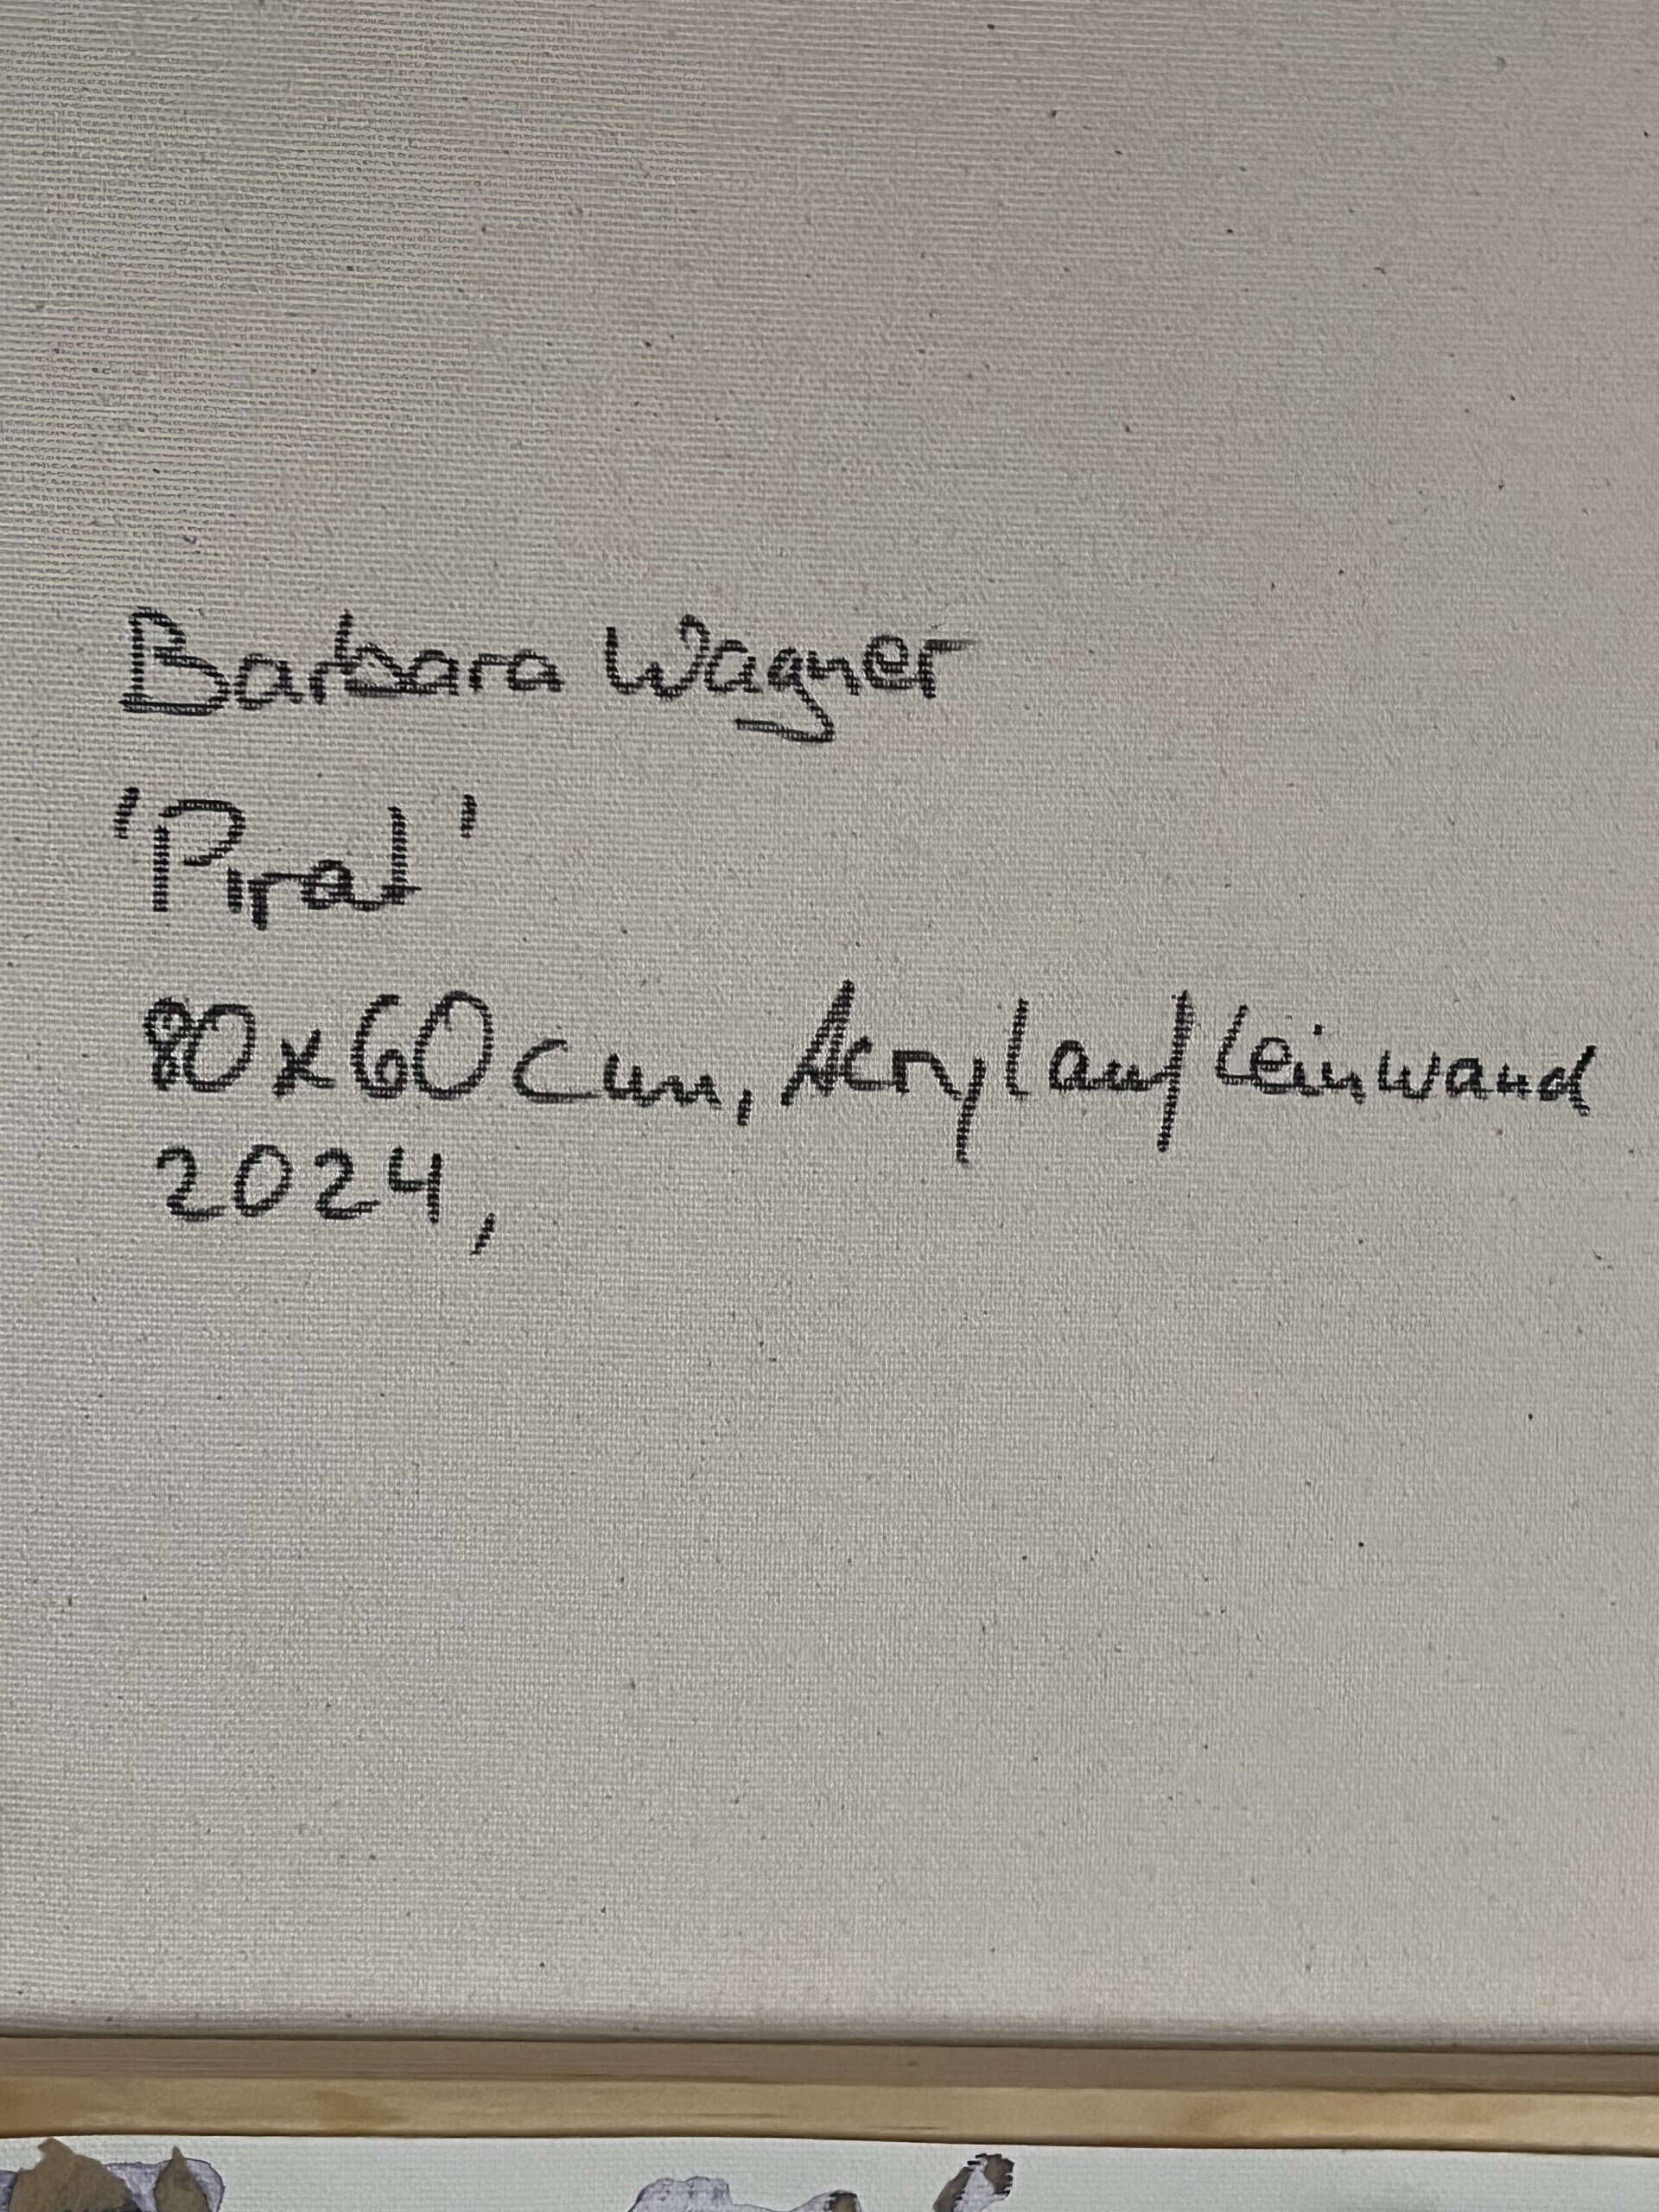 Barbara Wagner
"Pirat"
80x60cm, Acryl auf Leinwand
2024,